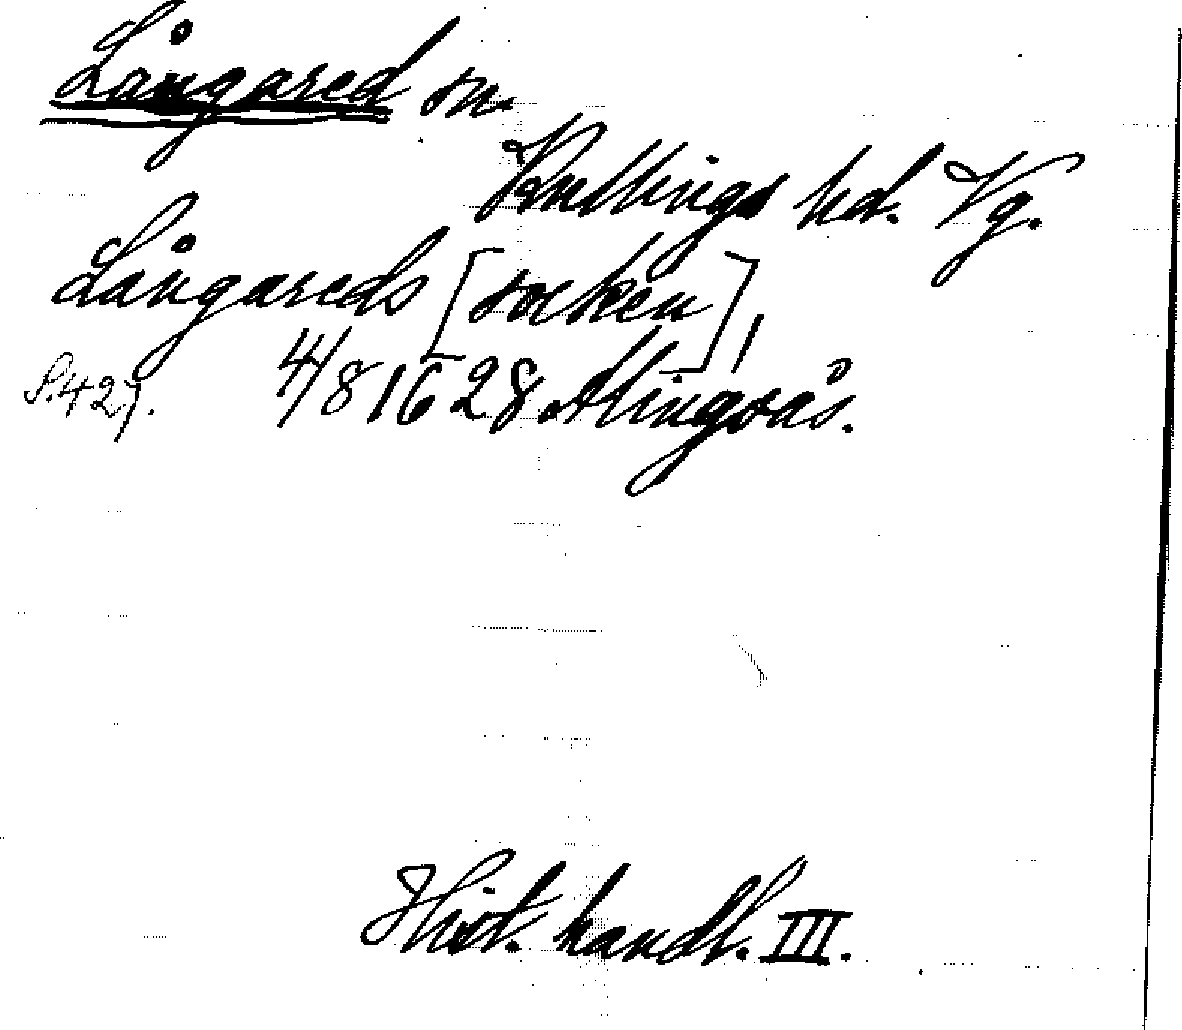 Långared sn.
Kullings hd. Vg.
Långareds [socken],
S. 427. 4/8 1628 Alingsås.
Hist. handl. III.